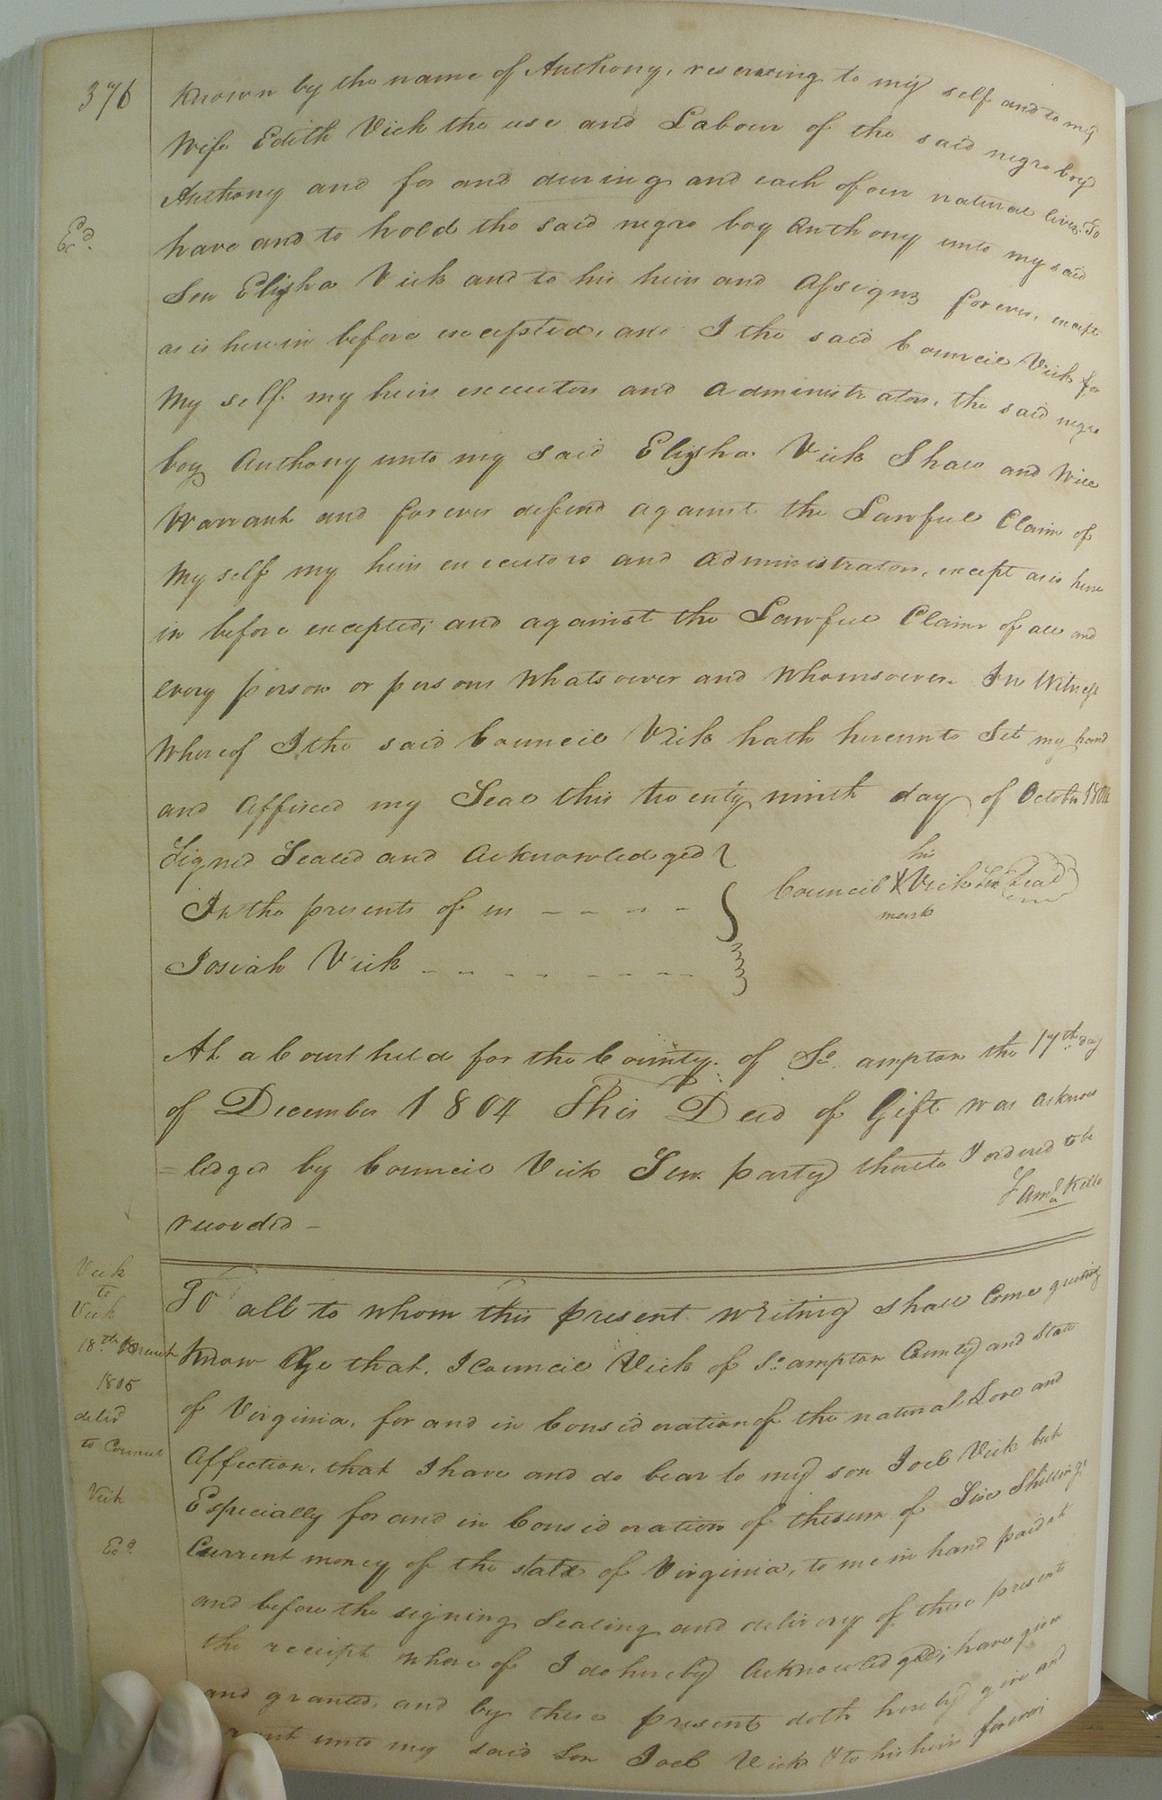 376
Known by the name of Anthony, reserving to my self and to my
Wife Edith Vick the use and Labour of the said negro boy
Anthony and for and during and each of our natural lives. To
Exd.
have and to hold the said negro boy Anthony unto my said
Son Elisha Vick and to his heirs and Assigns forever, except
as is herein before excepted, and I the said Council Vick for
My self my heirs executors and administrators, the said negro
boy Anthony unto my said Elisha Vick Shall and Will
Warrant and forever defend against the Lawful Claim of
My self my heirs executors and administrators, except as is here
in before excepted; and against the Lawfull Claims of all and
every person or persons Whatsoever and Whomsoever. In Witness
Whereof I the said Council Vick hath hereunto Set my hand
and affixed my Seal this twenty ninth day of October 1804
Signed Sealed and Acknowledged
In the presents of us
Josiah Vick
his
Council X Vick Sen (Seal)
mark
At a Court held for the County of So ampton the 17th day
of December 1804 This Deed of Gift was acknow
=ledged by Council Vick Sen. party thereto & ordered to be
recorded -
Saml Kello
Vick
to
Vick
18th March
1805
delivd
to Council
Vick
Exd.
To all to whom this present writing shall Come greeting
Know Ye that, I Council Vick of So ampton County and State
of Virginia, for and in Consideration of the natural Love and
Affection, that I have and do bear to my son Joel Vick but
Especially for and in Consideration of the sum of Six Shillings
Current money of the state of Virginia, to me in hand paid at
and before the signing Sealing and delivery of these presents
the receipt where of I do hereby Acknowledged; have given
and granted, and by these present doth hereby give and
grant unto my said Son Joel Vick & to his heirs forever